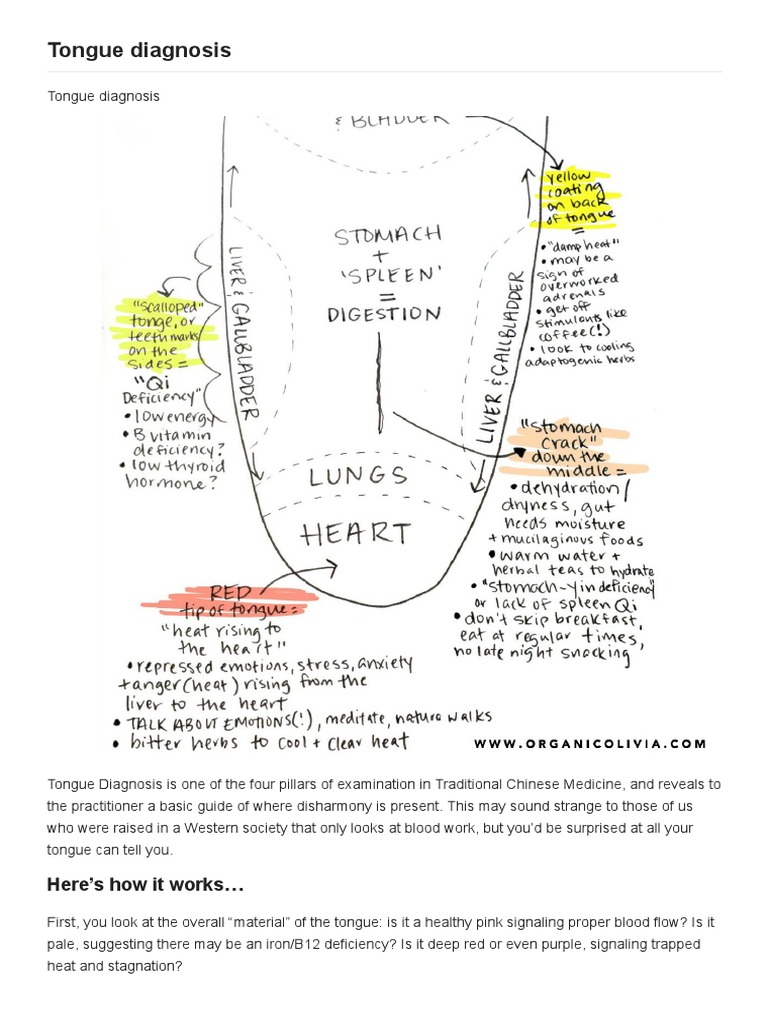 Tongue diagnosis
Tongue diagnosis
& BLADDER
yellow
coating
on back
of tongue
=
• "damp heat"
• may be a
sign of
overworked
adrenals
• get off
stimulants like
coffee(!)
• look to cooling
adaptogenic herbs
STOMACH
+
'SPLEEN'
=
DIGESTION
LIVER & GALLBLADDER
LIVER & GALLBLADDER
"scalloped"
tonge, or
teeth marks
on the
sides =
"Qi
Deficiency"
• low energy
• B vitamin
deficiency?
• low thyroid
hormone?
"Stomach
crack"
down the
middle =
• dehydration/
dryness, gut
needs moisture
+ mucilaginous foods
• warm water +
herbal teas to hydrate
• "stomach-yin deficiency"
or lack of spleen Qi
• don't skip breakfast,
eat at regular times,
no late night snacking
LUNGS
HEART
RED
tip of tongue =
"heat rising to
the heart"
• repressed emotions, stress, anxiety
+ anger (heat) rising from the
liver to the heart
• TALK ABOUT EMOTIONS(!), meditate, nature walks
• bitter herbs to cool + clear heat
WWW.ORGANICOLIVIA.COM
Tongue Diagnosis is one of the four pillars of examination in Traditional Chinese Medicine, and reveals to
the practitioner a basic guide of where disharmony is present. This may sound strange to those of us
who were raised in a Western society that only looks at blood work, but you'd be surprised at all your
tongue can tell you.
Here's how it works…
First, you look at the overall "material" of the tongue: is it a healthy pink signaling proper blood flow? Is it
pale, suggesting there may be an iron/B12 deficiency? Is it deep red or even purple, signaling trapped
heat and stagnation?